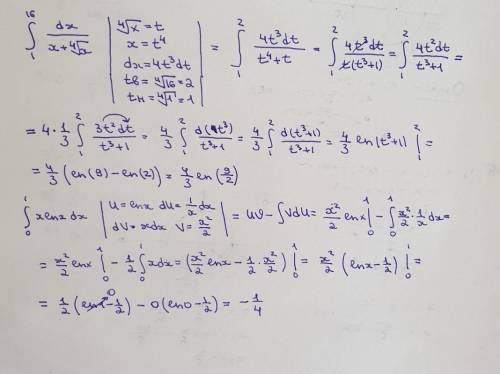 ∫₁¹⁶ dx/(x+⁴√x) | ⁴√x = t; x = t⁴; dx = 4t³dt; tв = ⁴√16 = 2; tн = ⁴√1 = 1 | = ∫₁² 4t³dt/(t⁴+t) = ∫₁² 4t³dt/(t(t³+1)) = ∫₁² 4t²dt/(t³+1) =
= 4·1/3 ∫₁² 3t²dt/(t³+1) = 4/3 ∫₁² d(t³)/(t³+1) = 4/3 ∫₁² d(t³+1)/(t³+1) = 4/3 ln|t³+1| |₁² =
= 4/3 (ln(9) − ln(2)) = 4/3 ln(9/2)
∫₀¹ xlnx dx | U = lnx dU = 1/x dx; dV = xdx V = x²/2 | = UV − ∫VdU = x²/2 lnx |₀¹ − ∫₀¹ x²/2 · 1/x dx =
= x²/2 lnx |₀¹ − 1/2 ∫₀¹ xdx = (x²/2 lnx − 1/2 · x²/2) |₀¹ = x²/2 (lnx − 1/2) |₀¹ =
= 1/2 (ln1 − 1/2) − 0(ln0 − 1/2) = −1/4